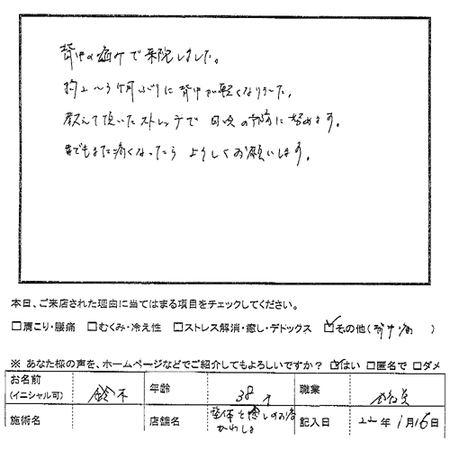 背中の痛みで来院しました。
約2～3ヶ月ぶりに背中が軽くなりました。
教えて頂いたストレッチで日々の予防に努めます。
またよろしくお願いします。
本日、ご来店された理由に当てはまる項目をチェックしてください。
□肩こり・腰痛 □むくみ・冷え性 □ストレス解消・癒し・デトックス ☑その他(背中痛)
※ あなた様の声を、ホームページなどでご紹介してもよろしいですか？ ☑はい □匿名で □ダメ
お名前
(イニシャル可) 鈴木 年齢 38才 職業
施術名 店舗名 整体と癒しのお店 かわしま 記入日 22年1月16日